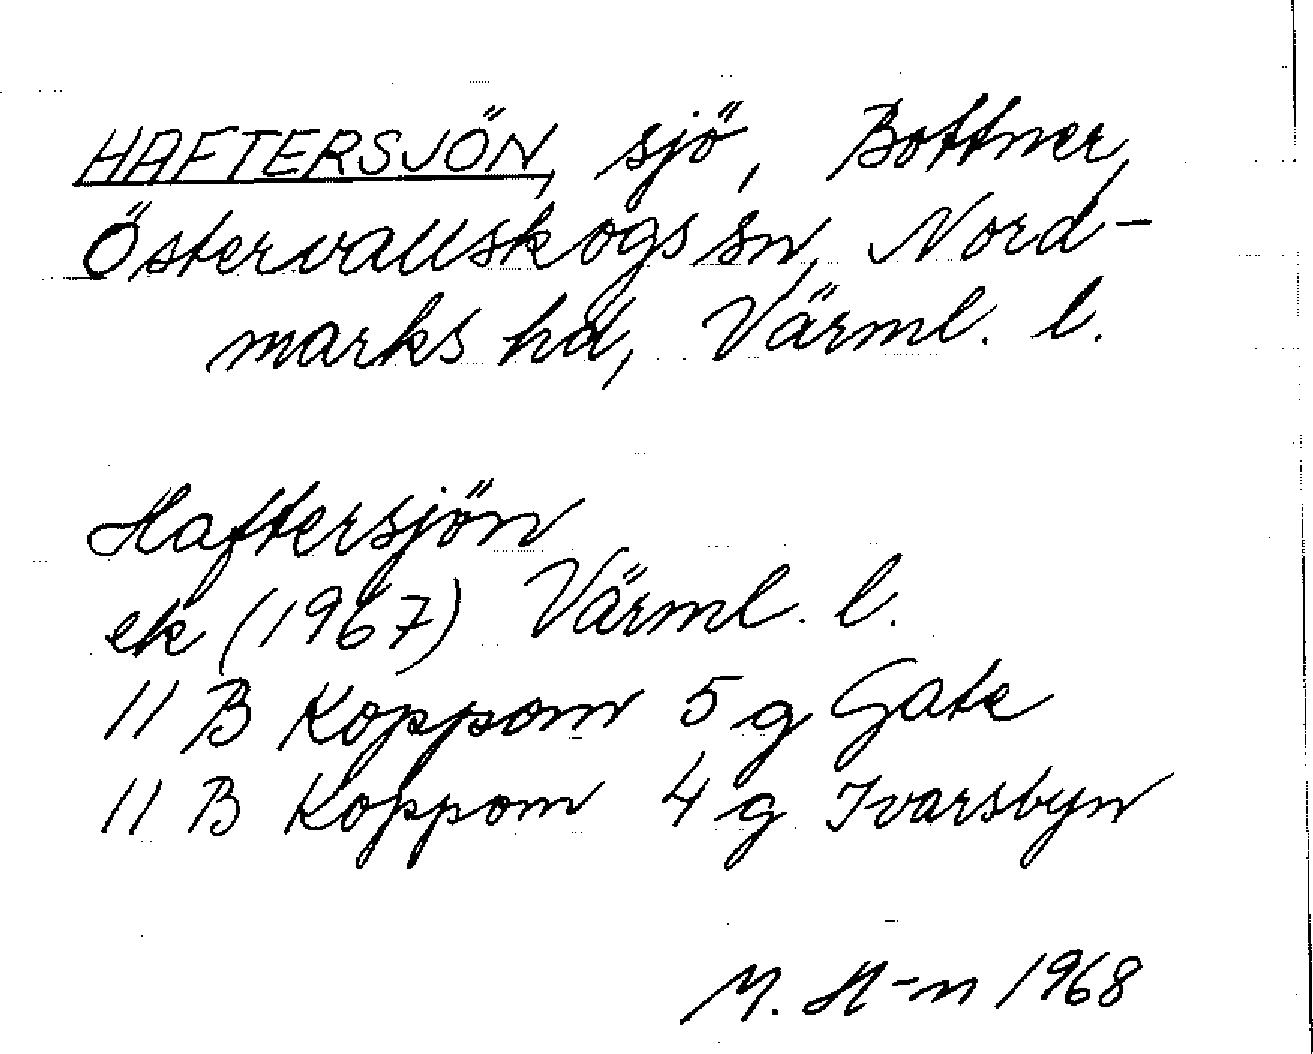 HAFTERSJÖN, sjö, Bottner,
Östervallskogs sn, Nord-
marks hd, Värml. l.
Haftersjön
ek (1967) Värml. l.
11 B Koppom 5 g Gate
11 B Koppom 4 g Ivarsbyn
M. H-m 1968